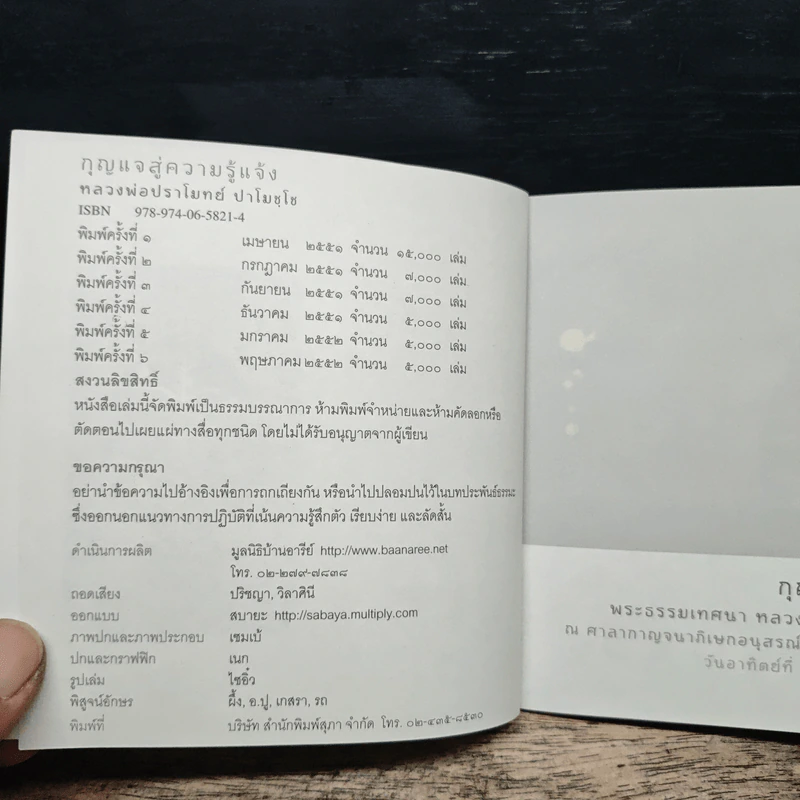 กุญแจสู่ความรู้แจ้ง
หลวงพ่อปราโมทย์ ปาโมชฺโช
ISBN 978-974-06-5821-4
พิมพ์ครั้งที่ ๑ เมษายน ๒๕๕๑ จำนวน ๑๕,๐๐๐ เล่ม
พิมพ์ครั้งที่ ๒ กรกฎาคม ๒๕๕๑ จำนวน ๗,๐๐๐ เล่ม
พิมพ์ครั้งที่ ๓ กันยายน ๒๕๕๑ จำนวน ๗,๐๐๐ เล่ม
พิมพ์ครั้งที่ ๔ ธันวาคม ๒๕๕๑ จำนวน ๕,๐๐๐ เล่ม
พิมพ์ครั้งที่ ๕ มกราคม ๒๕๕๒ จำนวน ๕,๐๐๐ เล่ม
พิมพ์ครั้งที่ ๖ พฤษภาคม ๒๕๕๒ จำนวน ๕,๐๐๐ เล่ม
สงวนลิขสิทธิ์
หนังสือเล่มนี้จัดพิมพ์เป็นธรรมบรรณาการ ห้ามพิมพ์จำหน่ายและห้ามคัดลอกหรือ
ตัดตอนไปเผยแผ่ทางสื่อทุกชนิด โดยไม่ได้รับอนุญาตจากผู้เขียน
ขอความกรุณา
อย่านำข้อความไปอ้างอิงเพื่อการถกเถียงกัน หรือนำไปปลอมปนไว้ในบทประพันธ์ธรรมะ
ซึ่งออกนอกแนวทางการปฏิบัติที่เน้นความรู้สึกตัว เรียบง่าย และลัดสั้น
ดำเนินการผลิต มูลนิธิบ้านอารีย์ http://www.baanaree.net
โทร. ๐๒-๒๗๙-๗๘๓๘
ถอดเสียง ปริชญา, วิลาศินี
ออกแบบ สบายะ http://sabaya.multiply.com
ภาพปกและภาพประกอบ เซมเบ้
ปกและกราฟฟิก เนก
รูปเล่ม ไซอิ๋ว
พิสูจน์อักษร ผึ้ง, อ.ปู, เกสรา, รถ
พิมพ์ที่ บริษัท สำนักพิมพ์สุภา จำกัด โทร. ๐๒-๔๓๕-๘๕๓๐
พระธรรมเทศนา หลวง
ณ ศาลากาญจนาภิเษกอนุสรณ์
วันอาทิตย์ที่